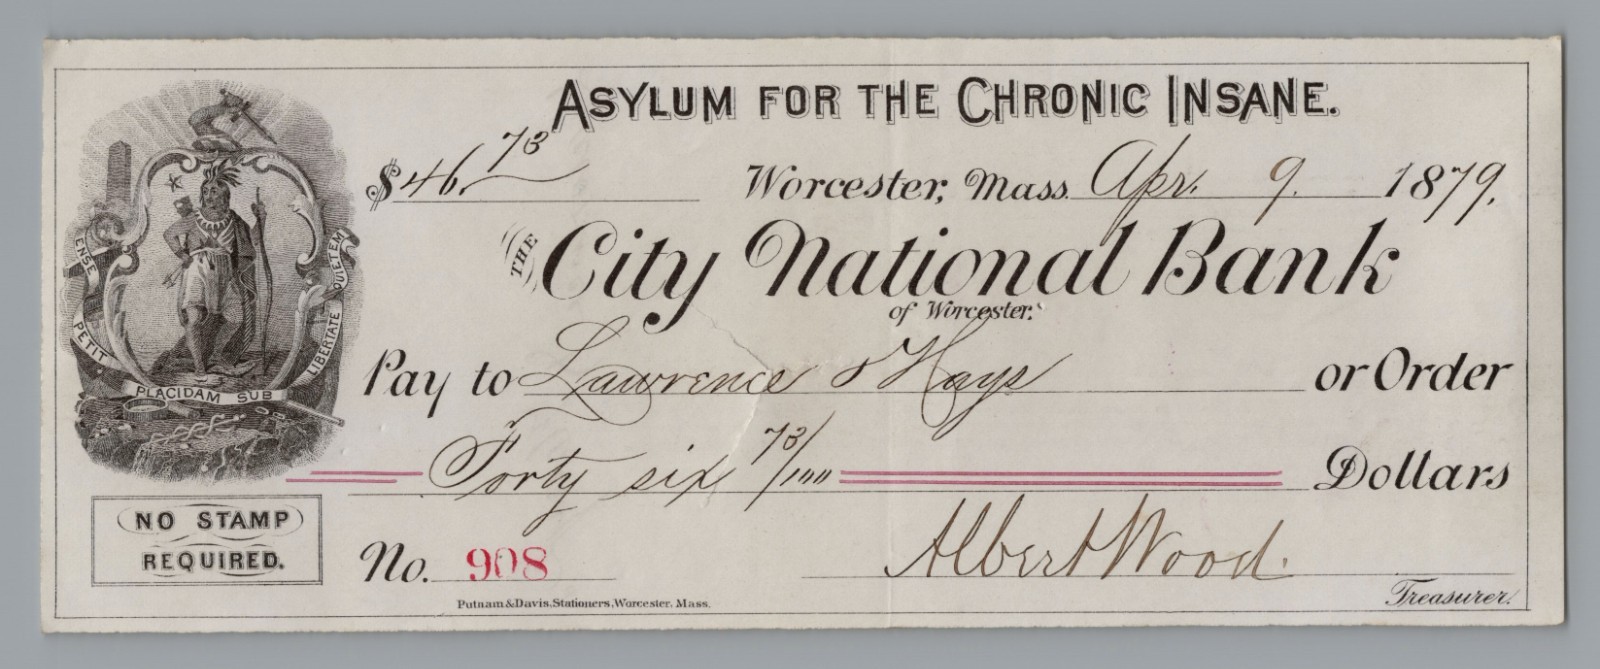 ASYLUM FOR THE CHRONIC INSANE.
$46.73 Worcester, Mass. Apr. 9. 1879.
THE City National Bank
of Worcester.
Pay to Lawrence & Hays or Order
Forty six 73/100 Dollars
No. 908 Albert Wood.
Treasurer.
Putnam & Davis, Stationers, Worcester, Mass.
ENSE
PETIT
PLACIDAM SUB
LIBERTATE
QUIETEM
NO STAMP
REQUIRED.